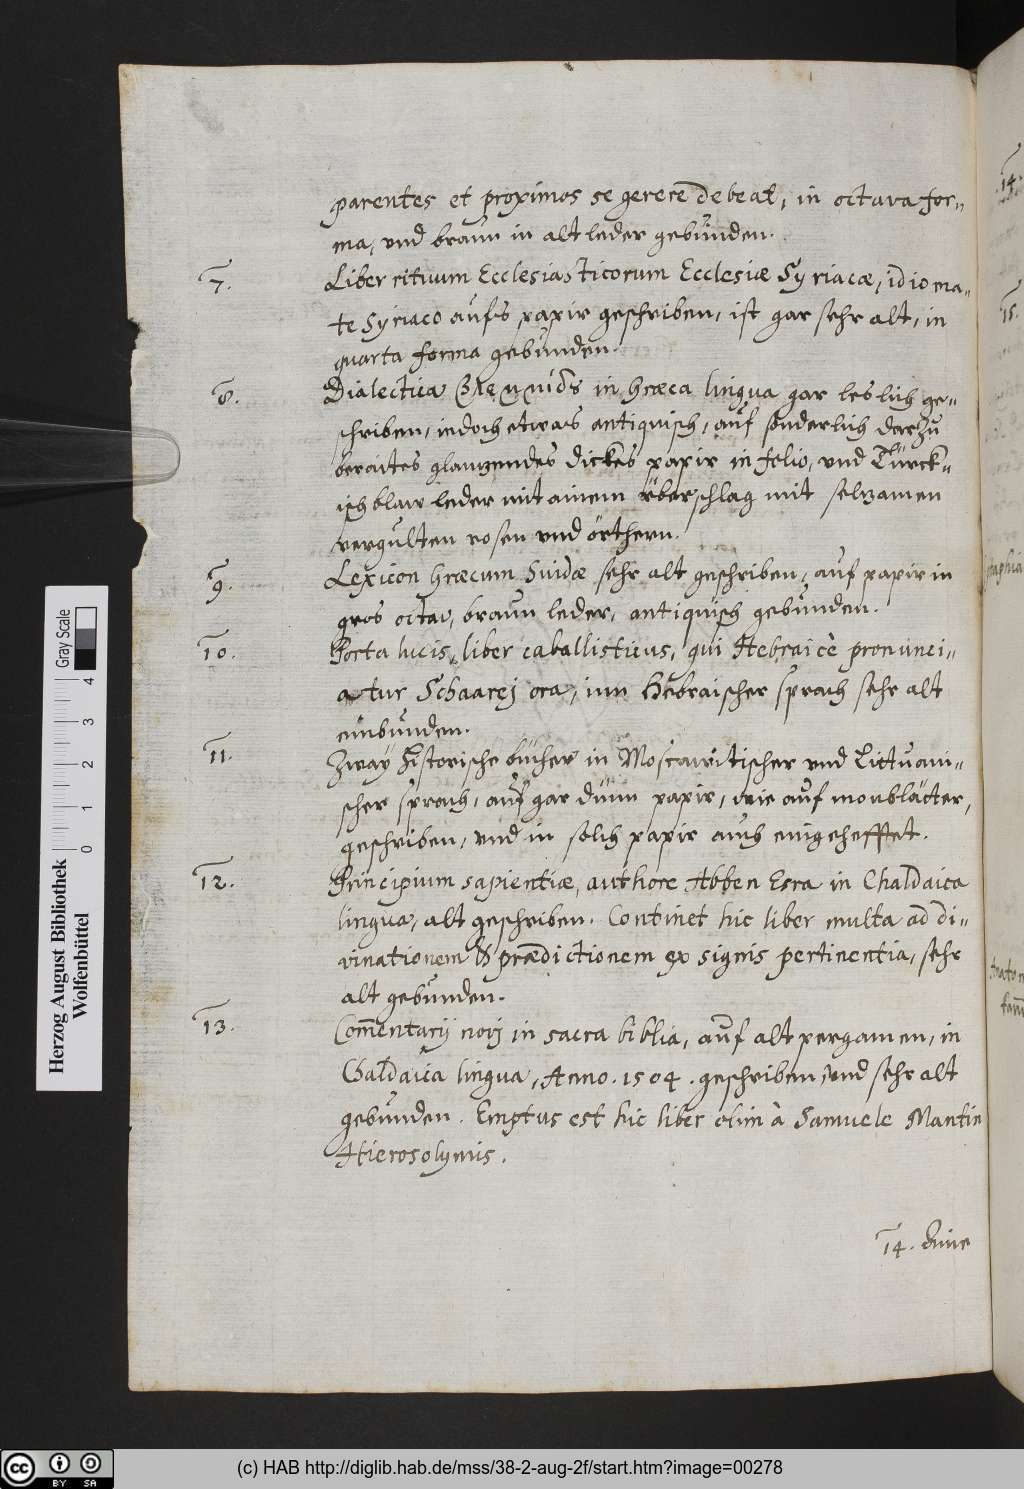 parentes et proximos se gerere debeat, in octava for-
ma, vnd braun in alt leder gebunden.
7. Liber rituum Ecclesiasticorum Ecclesiæ Syriacæ, idioma-
te Syriaco aufs papir geschriben, ist gar sehr alt, in
quarta forma gebunden.
8. Dialectica in Græca lingua gar leslich ge-
schriben, iedoch etwas antiquisch, auf sonderlich darzu
beraites glantzendes dickes papir in folio, vnd Türck-
isch blaw leder mit ainem überschlag mit seltzamen
vergulten rosen vnd örthern.
9. Lexicon Græcum Suidæ sehr alt geschriben, auf papir in
gros octav, braun leder, antiquisch gebunden.
10. Porta lucis, liber caballisticus, qui Hebraicè pronunci-
atur Schaarej ora, inn Hebraischer sprach sehr alt
einbunden.
11. Zway historische bücher in Moscawitischer vnd Littuani-
scher sprach, auf gar dünn papir, wie auf monblätter,
geschriben, vnd in solch papir auch eingeheftet.
12. Principium sapientiæ, authore Abben Esra in Chaldaica
lingua, alt geschriben. Continet hic liber multa ad di-
vinationem & prædictionem ex signis pertinentia, sehr
alt gebunden.
13. Com̄entarij novj in sacra biblia, auf alt pergamen, in
Chaldaica lingua, Anno. 1504. geschriben, vnd sehr alt
gebunden. Emptus est hic liber olim à Samuele Mantin
Hierosolymis.
14. Aine
14.
15.
Herzog August Bibliothek
Wolfenbüttel
Gray Scale
0 1 2 3 4
BY SA
(c) HAB http://diglib.hab.de/mss/38-2-aug-2f/start.htm?image=00278